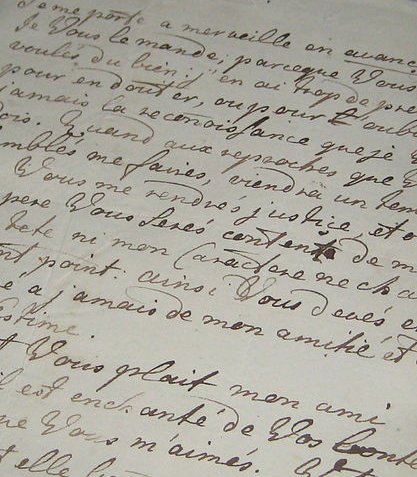 Je me porte a merveille en avanc
Je Vous le mande, parceque Vous
voulés du bien: j'en ai trop de pre
pour en douter, ou pour l'oubl
jamais la reconoissance que je V
dois. Quand aux reproches que V
semblés me faires, viendra un tem
Vous me rendrés justice, et e
pere Vous serés contente de m
tete ni mon Caractere ne cha
ont point. ainsi Vous devés e
é a jamais de mon amitié et
estime.
Vous plait mon ami
il est enchanté de Vos bonte
que Vous m'aimés.
et elle